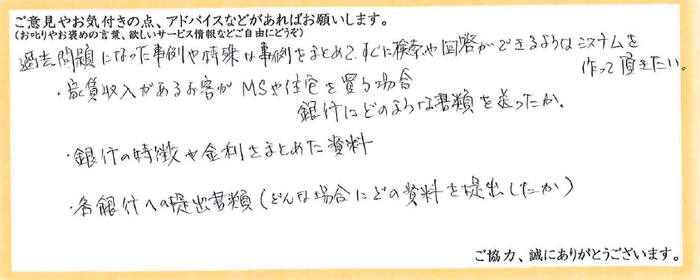 ご意見やお気付きの点、アドバイスなどがあればお願いします。
(お叱りやお褒めの言葉、欲しいサービス情報などご自由にどうぞ)
過去問題になった事例や特殊な事例をまとめて、すぐに検索や回答ができるようなシステムを
作って頂きたい。
・家賃収入があるお客が MSや住宅を買う場合
銀行にどのような書類を送ったか。
・銀行の特徴や金利をまとめた資料
・各銀行への提出書類(どんな場合にどの資料を提出したか)
ご協力、誠にありがとうございます。